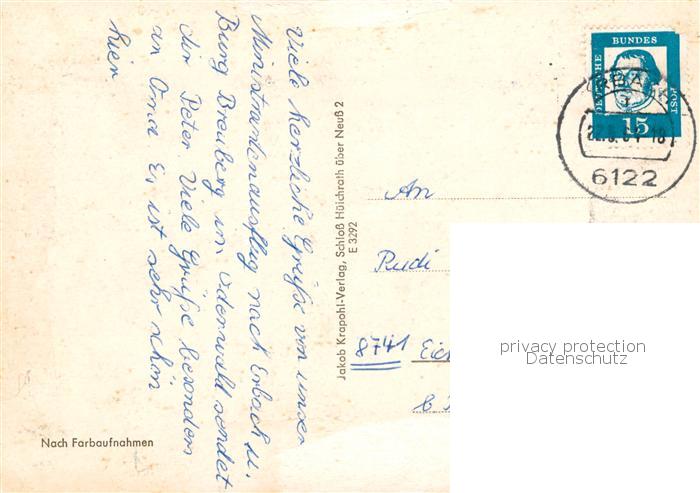 Viele herzliche Grüße von unser
Ministrantenausflug nach Erbach u.
Burg Breuberg im Odenwald sendet
dir Peter. Viele Grüße besonders
an Oma. Es ist sehr schön
hier
Nach Farbaufnahmen
Jakob Krapohl-Verlag, Schloß Hülchrath über Neuß 2
E 3292
DEUTSCHE BUNDES POST
15
ERBACH
22.5.64-18
6122
An
Rudi
8741 Eich
privacy protection
Datenschutz